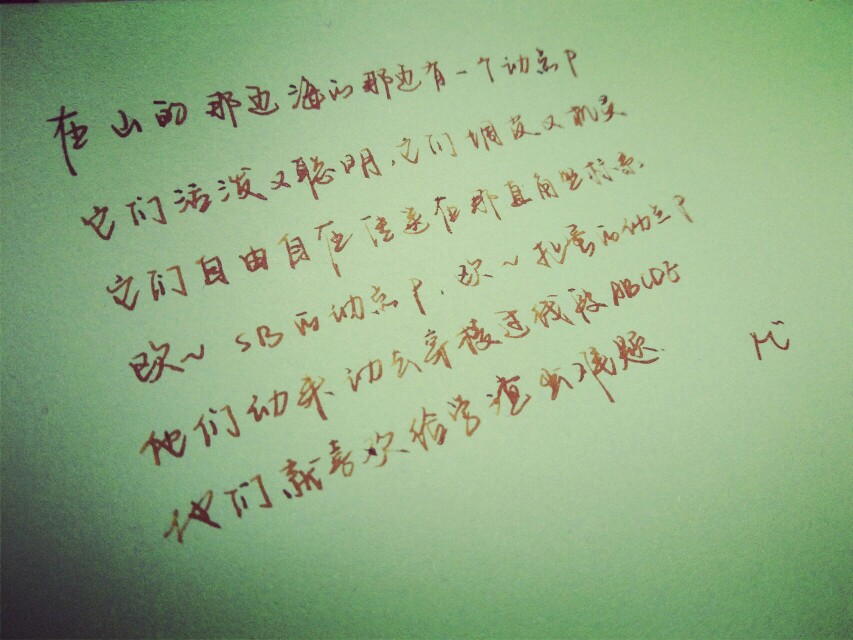 在山的那边海的那边有一个动点P
它们活泼又聪明,它们调皮又机灵
它们自由自在住在那直角坐标系.
欧~SB的动点P,欧~ 的动点P
他们动来动去穿梭过线段ABCDE
他们就喜欢给学渣出难题.